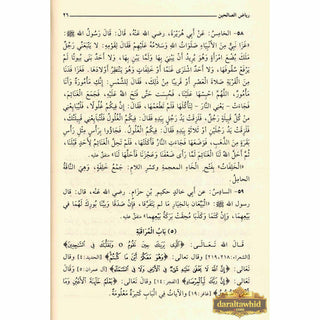 رياض الصالحين ٤٦
٥٨- الخامِسُ: عَنْ أبي هُرَيْرَةَ، رضي الله عنه، قال: قال رسولُ الله ﷺ
«غَزَا نَبِيٌّ مِنَ الأَنْبِيَاءِ صَلَوَاتُ الله وَسَلَامُهُ عَلَيْهِمْ فَقَالَ لِقَوْمِهِ: لا يَتْبَعَنِّي رَجُلٌ
مَلَكَ بُضْعَ امْرَأَةٍ وَهُوَ يُرِيدُ أَنْ يَبْنِيَ بِهَا وَلَمَّا يَبْنِ بِهَا، وَلا أَحَدٌ بَنَى بُيُوتاً لَمْ
يَرْفَعْ سُقُوفَهَا، وَلا أَحَدٌ اشْتَرَى غَنَماً أَوْ خَلِفَاتٍ وَهُوَ يَنْتَظِرُ أَوْلادَهَا. فَغَزَا فَدَنَا
مِنَ الْقَرْيَةِ صَلاةَ الْعَصْرِ أَوْ قَرِيباً مِنْ ذلِكَ، فَقَالَ لِلشَّمْسِ: إِنَّكِ مَأْمُورَةٌ وَأَنَا
مَأْمُورٌ، اللَّهُمَّ احْبِسْهَا عَلَيْنَا، فَحُبِسَتْ حَتَّى فَتَحَ اللهُ عَلَيْهِ، فَجَمَعَ الْغَنَائِمَ،
فَجَاءَتْ - يَعْنِي النَّارَ - لِتَأْكُلَهَا فَلَمْ تَطْعَمْهَا، فَقَالَ: إِنَّ فِيكُمْ غُلُولاً، فَلْيُبَايِعْنِي
مِنْ كُلِّ قَبِيلَةٍ رَجُلٌ، فَلَزِقَتْ يَدُ رَجُلٍ بِيَدِهِ فَقَالَ: فِيكُمُ الْغُلُولُ، فَلْتُبَايِعْنِي قَبِيلَتُكَ،
فَلَزِقَتْ يَدُ رَجُلَيْنِ أَوْ ثَلاثَةٍ بِيَدِهِ فَقَالَ: فِيكُمُ الْغُلُولُ، فَجَاؤُوا بِرَأْسٍ مِثْلِ رَأْسِ
بَقَرَةٍ مِنَ الذَّهَبِ، فَوَضَعَهَا فَجَاءَتِ النَّارُ فَأَكَلَتْهَا، فَلَمْ تَحِلَّ الْغَنَائِمُ لأَحَدٍ قَبْلَنَا،
ثُمَّ أَحَلَّ اللهُ لَنَا الْغَنَائِمَ لَمَّا رَأَى ضَعْفَنَا وَعَجْزَنَا فَأَحَلَّهَا لَنَا» متفقٌ عليه.
«الخَلِفَاتُ» بفتح الخاءِ المعجمة وكسرِ اللامِ: جمعُ خَلِفَةٍ، وهِيَ النَّاقَةُ
الحامِلُ.
٥٩- السادس: عن أبي خالدٍ حكيمِ بْنِ حِزَامٍ. رضي الله عنه، قال: قال
رسولُ الله ﷺ: «الْبَيِّعَانِ بالخِيارِ ما لَمْ يَتَفَرَّقَا، فَإِنْ صَدَقَا وَبَيَّنَا بُورِكَ لَهُمَا في
بَيْعِهِمَا، وَإِنْ كَتَمَا وَكَذَبَا مُحِقَتْ بَرَكَةُ بَيْعِهِمَا» متفقٌ عليه.
(٥) بَابُ الْمُرَاقَبَةِ
قَالَ اللهُ تَعَالَى: ﴿الَّذِي يَرَاكَ حِينَ تَقُومُ ○ وَتَقَلُّبَكَ فِي السَّاجِدِينَ﴾
[الشعراء: ٢١٨، ٢١٩] وقال تعالى: ﴿وَهُوَ مَعَكُمْ أَيْنَ مَا كُنتُمْ﴾ [الحديد: ٤] وقال
تعالى: ﴿إِنَّ اللَّهَ لَا يَخْفَى عَلَيْهِ شَيْءٌ فِي الْأَرْضِ وَلَا فِي السَّمَاءِ﴾ [آل عمران: ٥] وقال
تعالى: ﴿إِنَّ رَبَّكَ لَبِالْمِرْصَادِ﴾ [الفجر: ١٤] وقال تعالى: ﴿يَعْلَمُ خَائِنَةَ الْأَعْيُنِ وَمَا
تُخْفِي الصُّدُورُ﴾ [غافر: ١٩] والآيات في الباب كَثِيرَةٌ مَعْلُومَةٌ.
daraltawhid
.com